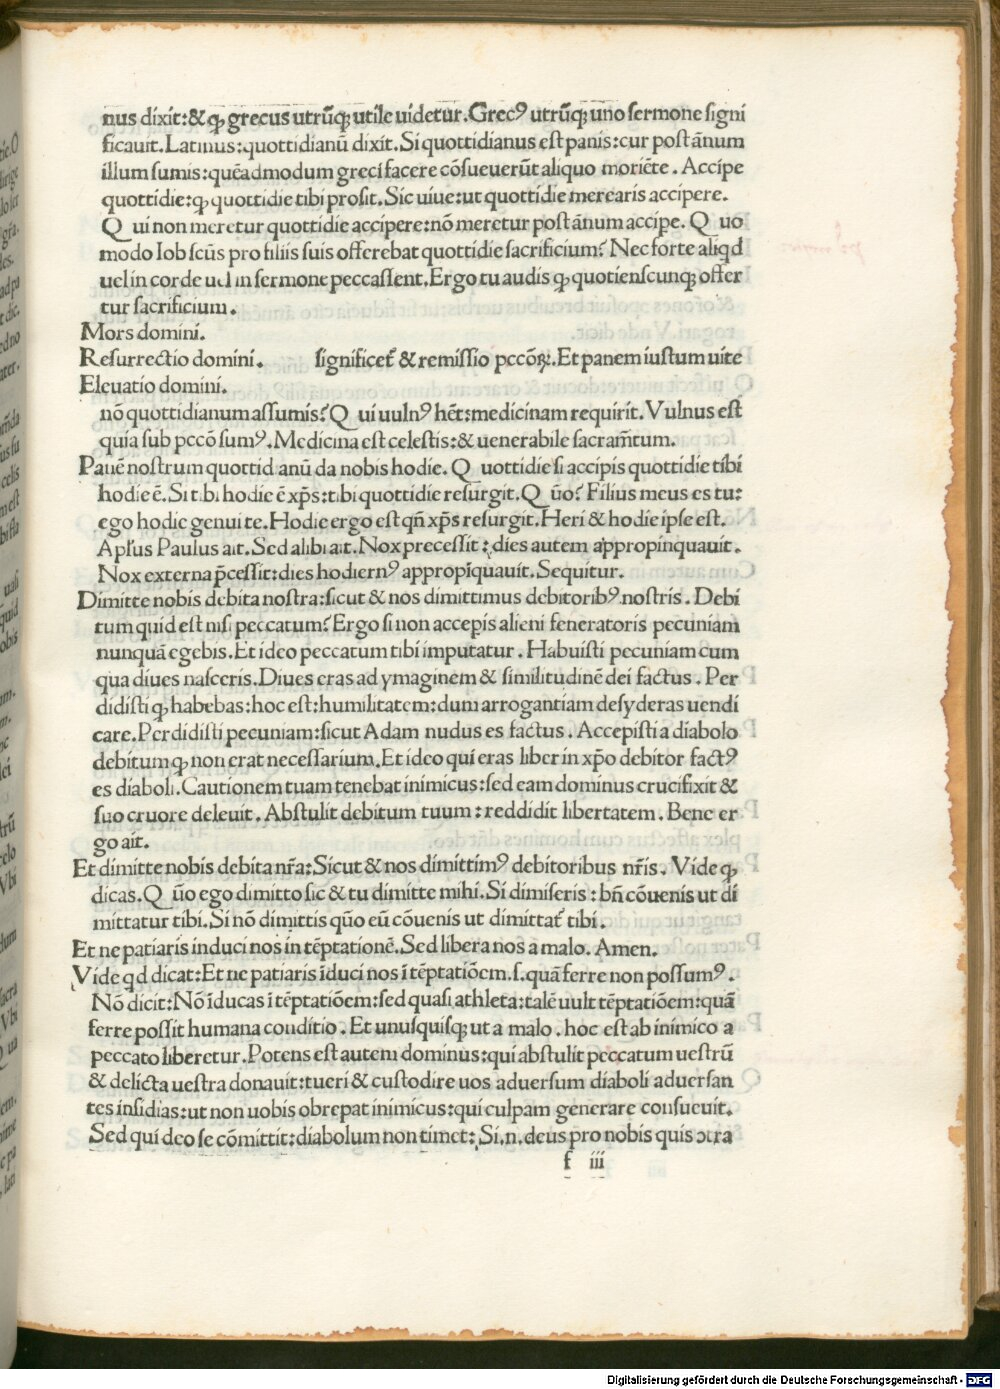 nus dixit:& ꝙ grecus utrũqꝫ utile uidetur.Grecꝰ utrũqꝫ uno sermone signi
ficauit.Latinus:quottidianũ dixit.Si quottidianus est panis:cur post ãnum
illum sumis:quẽadmodum greci facere cõsueuerũt aliquo moriẽte. Accipe
quottidie:ꝙ quottidie tibi prosit.Sic uiue:ut quottidie mercaris accipere.
Q ui non meretur quottidie accipere:nõ meretur post ãnum accipe. Q uo
modo Iob scũs pro filiis suis offerebat quottidie sacrificium? Nec forte aliqd
uel in corde uel in sermone peccassent.Ergo tu audis ꝙ quotienscunqꝫ offer
tur sacrificium.
Mors domini.
Resurrectio domini. significet̃ & remissio pccõꝝ.Et panem iustum uite
Eleuatio domini.
nõ quottidianum assumis? Q ui uulnꝰ hẽt:medicinam requirit. Vulnus est
quia sub pccõ sumꝰ.Medicina est celestis:& uenerabile sacram̃tum.
Panẽ nostrum quottid anũ da nobis hodie. Q uottidie si accipis quottidie tibi
hodie ẽ.Si tibi hodie ẽ xp̃s:tibi quottidie resurgit.Q ũo? Filius meus es tu:
ego hodie genui te.Hodie ergo est qñ xp̃s resurgit.Heri & hodie ipse est.
Apl'us Paulus ait.Sed alibi ait.Nox precessit:dies autem appropinquauit.
Nox externa p̃cessit:dies hodiernꝰ appropĩquauit.Sequitur.
Dimitte nobis debita nostra:sicut & nos dimittimus debitoribꝰ nostris. Debi
tum quid est nisi peccatum? Ergo si non accepis alieni feneratoris pecuniam
nunquã egebis.Et ideo peccatum tibi imputatur. Habuisti pecuniam cum
qua diues nasceris.Diues eras ad ymaginem & similitudinẽ dei factus. Per
didisti ꝙ habebas:hoc est:humilitatem:dum arrogantiam desyderas uendi
care.Perdidisti pecuniam:sicut Adam nudus es factus. Accepisti a diabolo
debitum ꝙ non erat necessarium.Et ideo qui eras liber in xp̃o debitor factꝰ
es diaboli.Cautionem tuam tenebat inimicus:sed eam dominus crucifixit &
suo cruore deleuit. Abstulit debitum tuum:reddidit libertatem. Bene er
go ait.
Et dimitte nobis debita nr̃a:Sicut & nos dimittimꝰ debitoribus nr̃is. Vide ꝙ
dicas.Q ũo ego dimitto sic & tu dimitte mihi.Si dimiseris:bñ cõuenis ut di
mittatur tibi.Si nõ dimittis qũo eũ cõuenis ut dimittat̃ tibi.
Et ne patiaris induci nos in tẽptationẽ.Sed libera nos a malo. Amen.
Vide qd dicat:Et ne patiaris ĩduci nos ĩ tẽptatiõem.s.quã ferre non possumꝰ.
Nõ dicit:Nõ ĩducas ĩ tẽptatiõem:sed quasi athleta:talẽ uult tẽptatiõem:quã
ferre possit humana conditio. Et unusquisqꝫ ut a malo.hoc est ab inimico a
peccato liberetur.Potens est autem dominus:qui abstulit peccatum uestrũ
& delicta uestra donauit:tueri & custodire uos aduersum diaboli aduersan
tes insidias:ut non uobis obrepat inimicus:qui culpam generare consueuit.
Sed qui deo se cõmittit:diabolum non timet:Si.n.deus pro nobis quis ɔtra
f iii
Digitalisierung gefördert durch die Deutsche Forschungsgemeinschaft - DFG